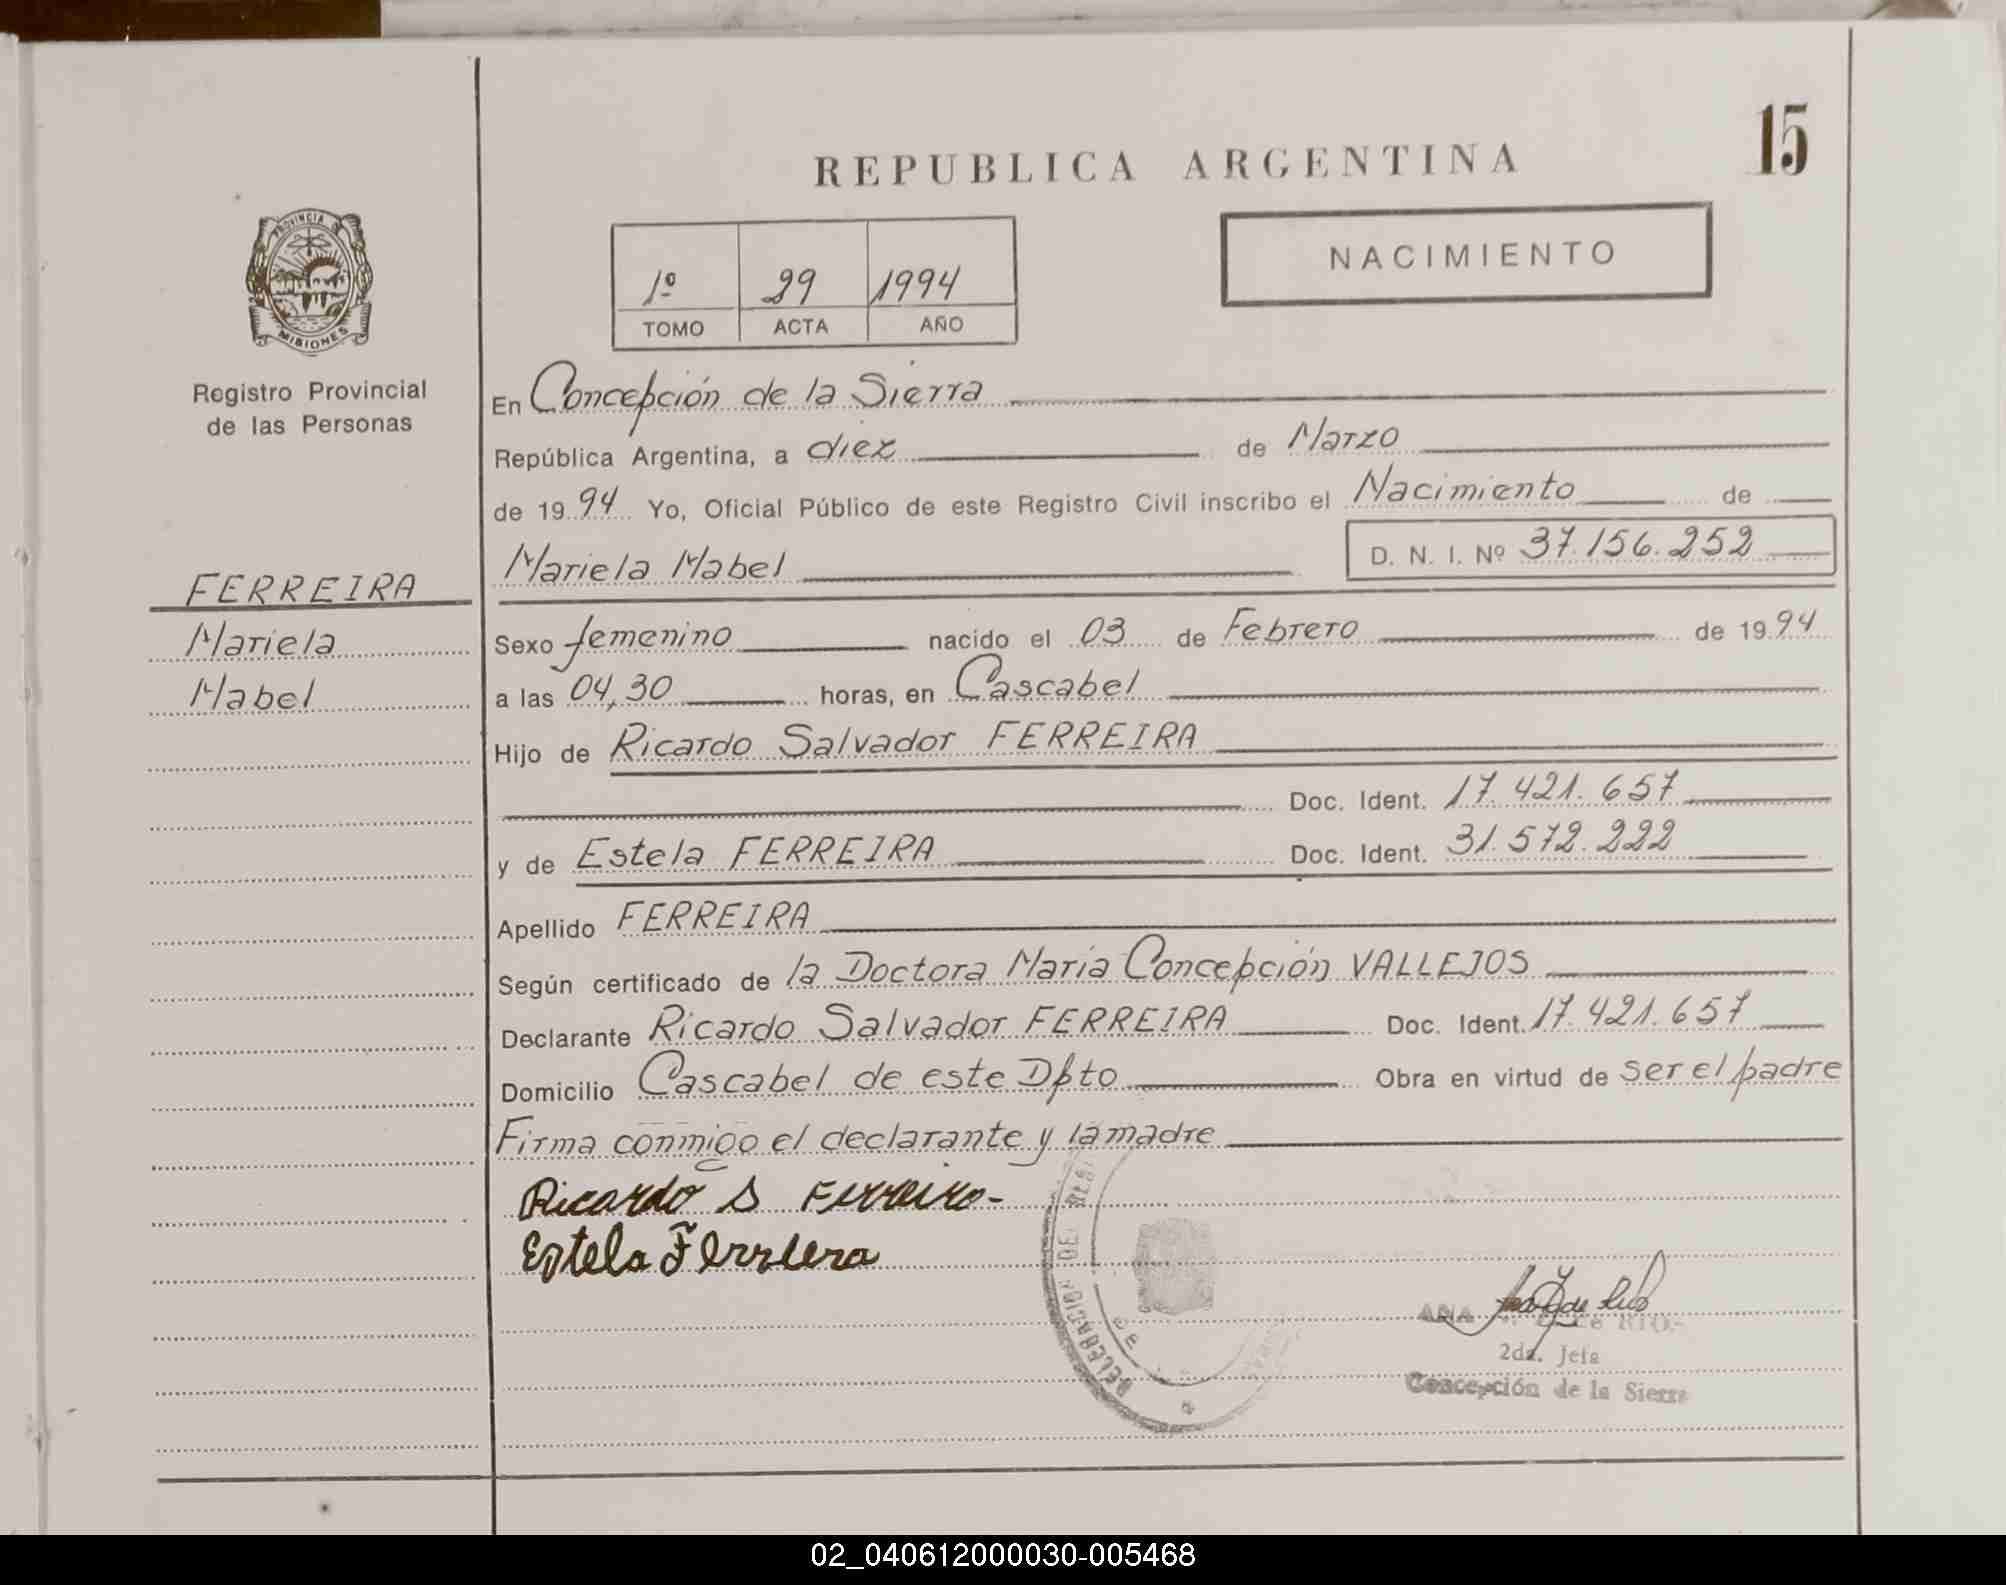 15
REPUBLICA ARGENTINA
NACIMIENTO
1º 29 1994
TOMO ACTA AÑO
PROVINCIA DE MISIONES
Registro Provincial
de las Personas
FERREIRA
Mariela
Mabel
En Concepción de la Sierra
República Argentina, a diez de Marzo
de 1994 Yo, Oficial Público de este Registro Civil inscribo el Nacimiento de
Mariela Mabel D. N. I. Nº 37.156.252
Sexo femenino nacido el 03 de Febrero de 1994
a las 04,30 horas, en Cascabel
Hijo de Ricardo Salvador FERREIRA
Doc. Ident. 17.421.657
y de Estela FERREIRA Doc. Ident. 31.572.222
Apellido FERREIRA
Según certificado de la Doctora María Concepción VALLEJOS
Declarante Ricardo Salvador FERREIRA Doc. Ident. 17.421.657
Domicilio Cascabel de este Dpto Obra en virtud de ser el padre
Firma conmigo el declarante y la madre
Ricardo S Ferreira-
Estela Ferreira
DELEGACION DEL REGI
DE
ANA RIO.-
2da. Jefa
Concepción de la Sierra
02_040612000030-005468